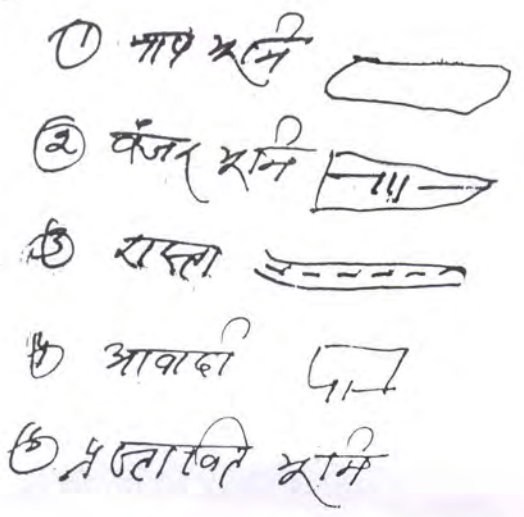 ① नाप भूमि
② बंजर भूमि
③ रास्ता
④ आवादी
⑤ प्रस्तावित भूमि